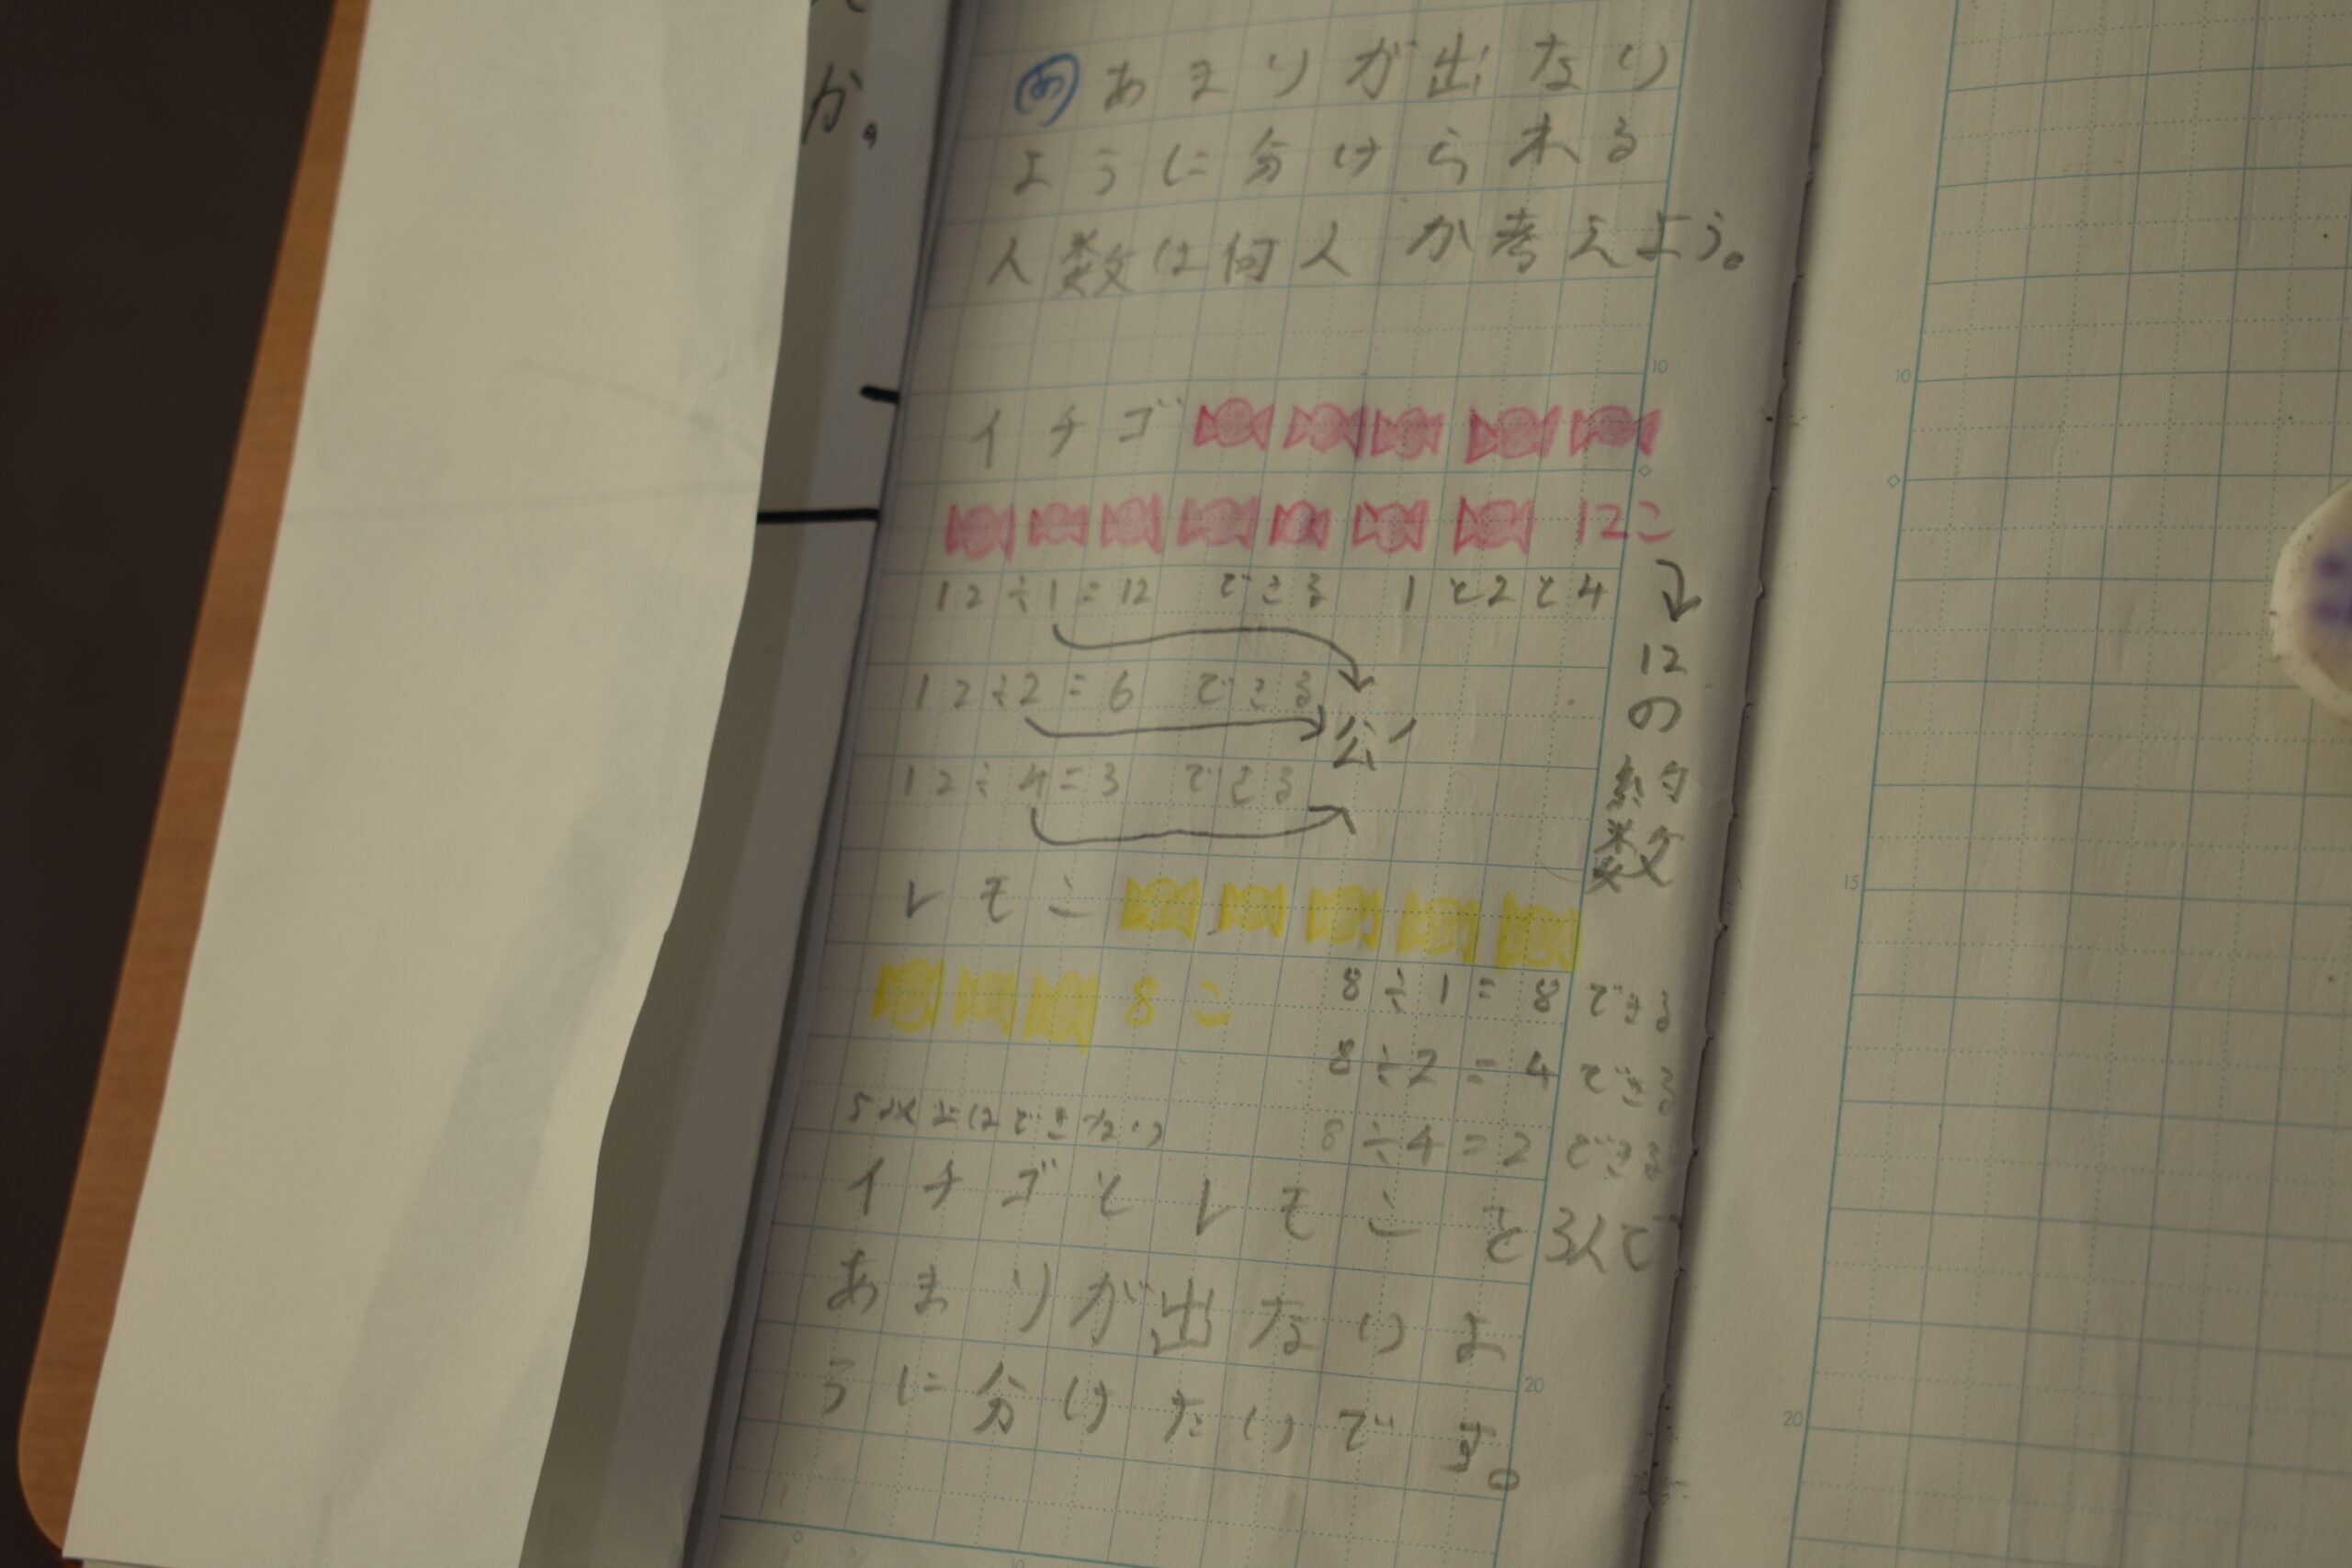 か。
め あまりが出ない
ように分けられる
人数は何人か考えよう。
イチゴ
12こ
12÷1=12 できる 1と2と4
12÷2=6 できる
公
12÷4=3 できる
12の約数
レモン
8こ 8÷1=8 できる
8÷2=4 できる
5以上はできない 8÷4=2 できる
イチゴとレモンを3人で
あまりが出ないよ
うに分けたいです。
10
15
20
10
20